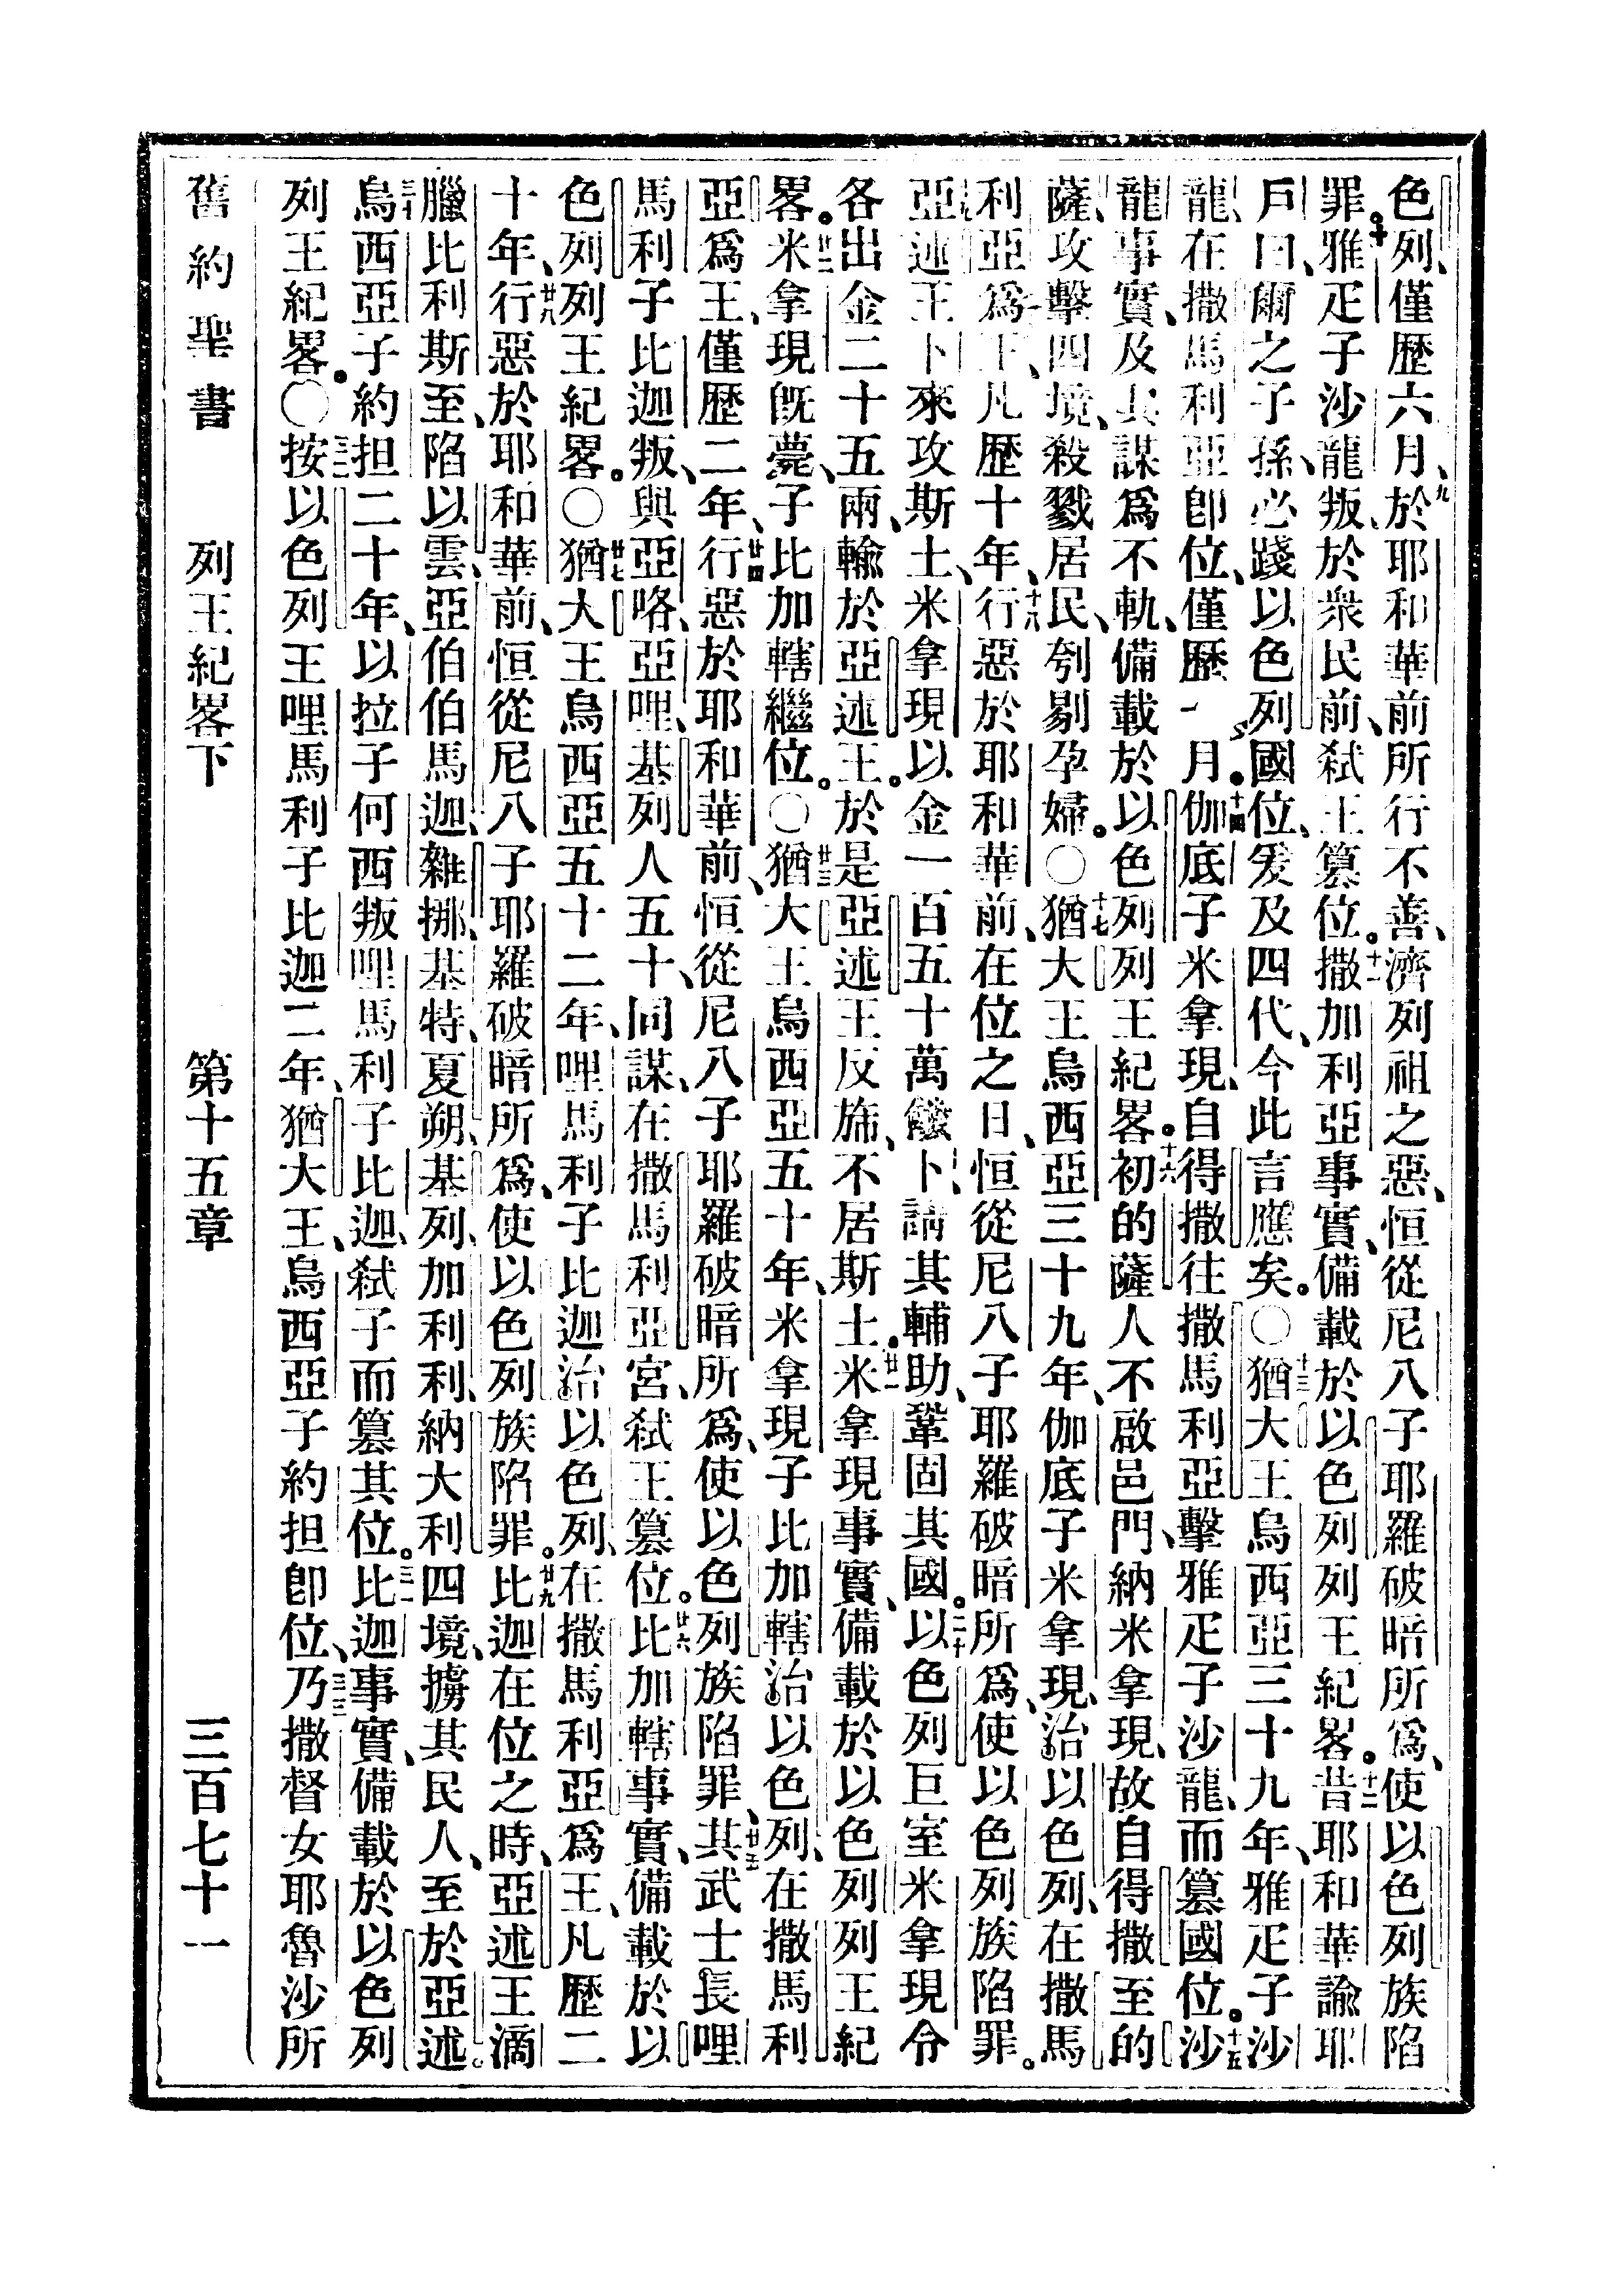 色列、僅歷六月、九於耶和華前所行不善、濟列祖之惡、恒從尼八子耶羅破暗所爲、使以色列族陷
罪。十雅疋子沙龍叛、於衆民前、弒王篡位。十一撒加利亞事實、備載於以色列列王紀畧。十二昔耶和華諭耶
戶曰、爾之子孫、必踐以色列國位、爰及四代、今此言應矣。〇十三猶大王烏西亞三十九年、雅疋子沙
龍、在撒馬利亞卽位、僅歷一月。十四伽底子米拿現、自得撒往撒馬利亞、擊雅疋子沙龍、而篡國位。十五沙
龍事實、及其謀爲不軌、備載於以色列列王紀畧。十六初的薩人不啟邑門、納米拿現、故自得撒至的
薩、攻擊四境、殺戮居民、刳剔孕婦。〇十七猶大王烏西亞三十九年、伽底子米拿現、治以色列、在撒馬
利亞爲王、凡歷十年、十八行惡於耶和華前、在位之日、恒從尼八子耶羅破暗所爲、使以色列族陷罪。
十九亞述王卜來攻斯土、米拿現以金一百五十萬餽卜、請其輔助、鞏固其國。二十以色列巨室米拿現令
各出金二十五兩、輸於亞述王。於是亞述王反旆、不居斯土。廿一米拿現事實、備載於以色列列王紀
畧。廿二米拿現旣薨、子比加轄繼位。〇廿三猶大王烏西亞五十年、米拿現子比加轄治以色列、在撒馬利
亞爲王、僅歷二年、廿四行惡於耶和華前、恒從尼八子耶羅破暗所爲、使以色列族陷罪、廿五其武士長哩
馬利子比迦叛、與亞咯、亞哩、基列人五十、同謀、在撒馬利亞宮、弒王篡位。廿六比加轄事實、備載於以
色列列王紀畧。〇廿七猶大王烏西亞五十二年、哩馬利子比迦治以色列、在撒馬利亞爲王、凡歷二
十年、廿八行惡於耶和華前、恒從尼八子耶羅破暗所爲、使以色列族陷罪。廿九比迦在位之時、亞述王滴
臘比利斯至、陷以雲、亞伯伯馬迦、雜挪、基特、夏朔、基列、加利利、納大利四境、擄其民人、至於亞述。
三十烏西亞子約担二十年、以拉子何西叛哩馬利子比迦、弒子而篡其位。三一比迦事實、備載於以色列
列王紀畧。〇三二按以色列王哩馬利子比迦二年、猶大王、烏西亞子約担卽位、三三乃撒督女耶魯沙所
舊約聖書 列王紀畧下 第十五章 三百七十一